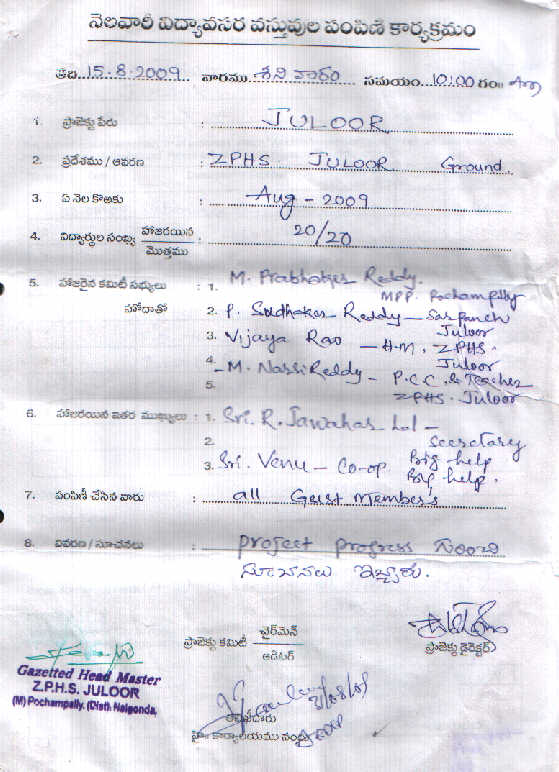 నెలవారీ విద్యావసర వస్తువుల పంపిణి కార్యక్రమం
తేది 15.8.2009 వారము శని వారం సమయం 10:00 గం॥
1. ప్రాజెక్టు పేరు : JULOOR
2. ప్రదేశము / ఆవరణ : ZPHS JULOOR Ground
3. ఏ నెల కొఱకు : Aug - 2009
4. విద్యార్థుల సంఖ్య హాజరయిన / మొత్తము : 20/20
5. హాజరైన కమిటీ సభ్యులు : 1. M. Prabhakar Reddy.
MPP. Pochampally
హోదాతో 2. P. Sudhakar Reddy - Sarpanch
Juloor
3. Vijaya Rao - H.M. ZPHS.
Juloor
4. - M. Narsi Reddy - P.C.C. & Teacher
5. ZPHS. Juloor
6. హాజరయిన ఇతర ముఖ్యులు : 1. Sri. R. Jawahar Lal -
2. secretary
Big help
3. Sri. Venu - CO-OP. Big help.
7. పంపిణీ చేసిన వారు : all Gust Member's
8. వివరణ / సూచనలు : project progress గురించి
సూచనలు ఇచ్చారు.
ప్రాజెక్టు కమిటీ చైర్‌మెన్ / ఆడిటర్
ప్రాజెక్టు డైరెక్టర్
Gazetted Head Master
Z.P.H.S. JULOOR
(M) Pochampally. (Dist). Nalgonda.